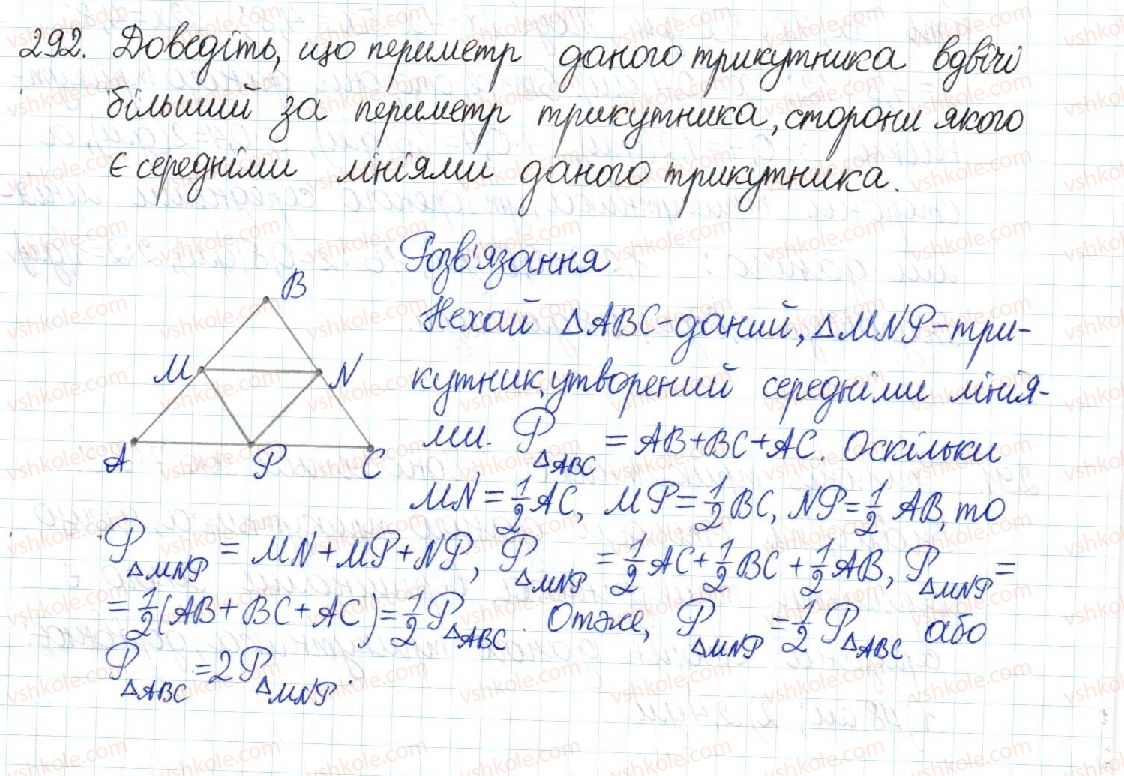 292. Доведіть, що периметр даного трикутника вдвічі
більший за периметр трикутника, сторони якого
є середніми лініями даного трикутника.
Розв'язання
Нехай △ABC-даний, △MNP-три-
кутник, утворений середніми лінія-
ми. P△ABC = AB+BC+AC. Оскільки
MN = 1/2 AC, MP = 1/2 BC, NP = 1/2 AB, то
P△MNP = MN+MP+NP, P△MNP = 1/2 AC + 1/2 BC + 1/2 AB, P△MNP =
= 1/2 (AB+BC+AC) = 1/2 P△ABC. Отже, P△MNP = 1/2 P△ABC або
P△ABC = 2P△MNP.
B
M N
A P C
vshkole.com